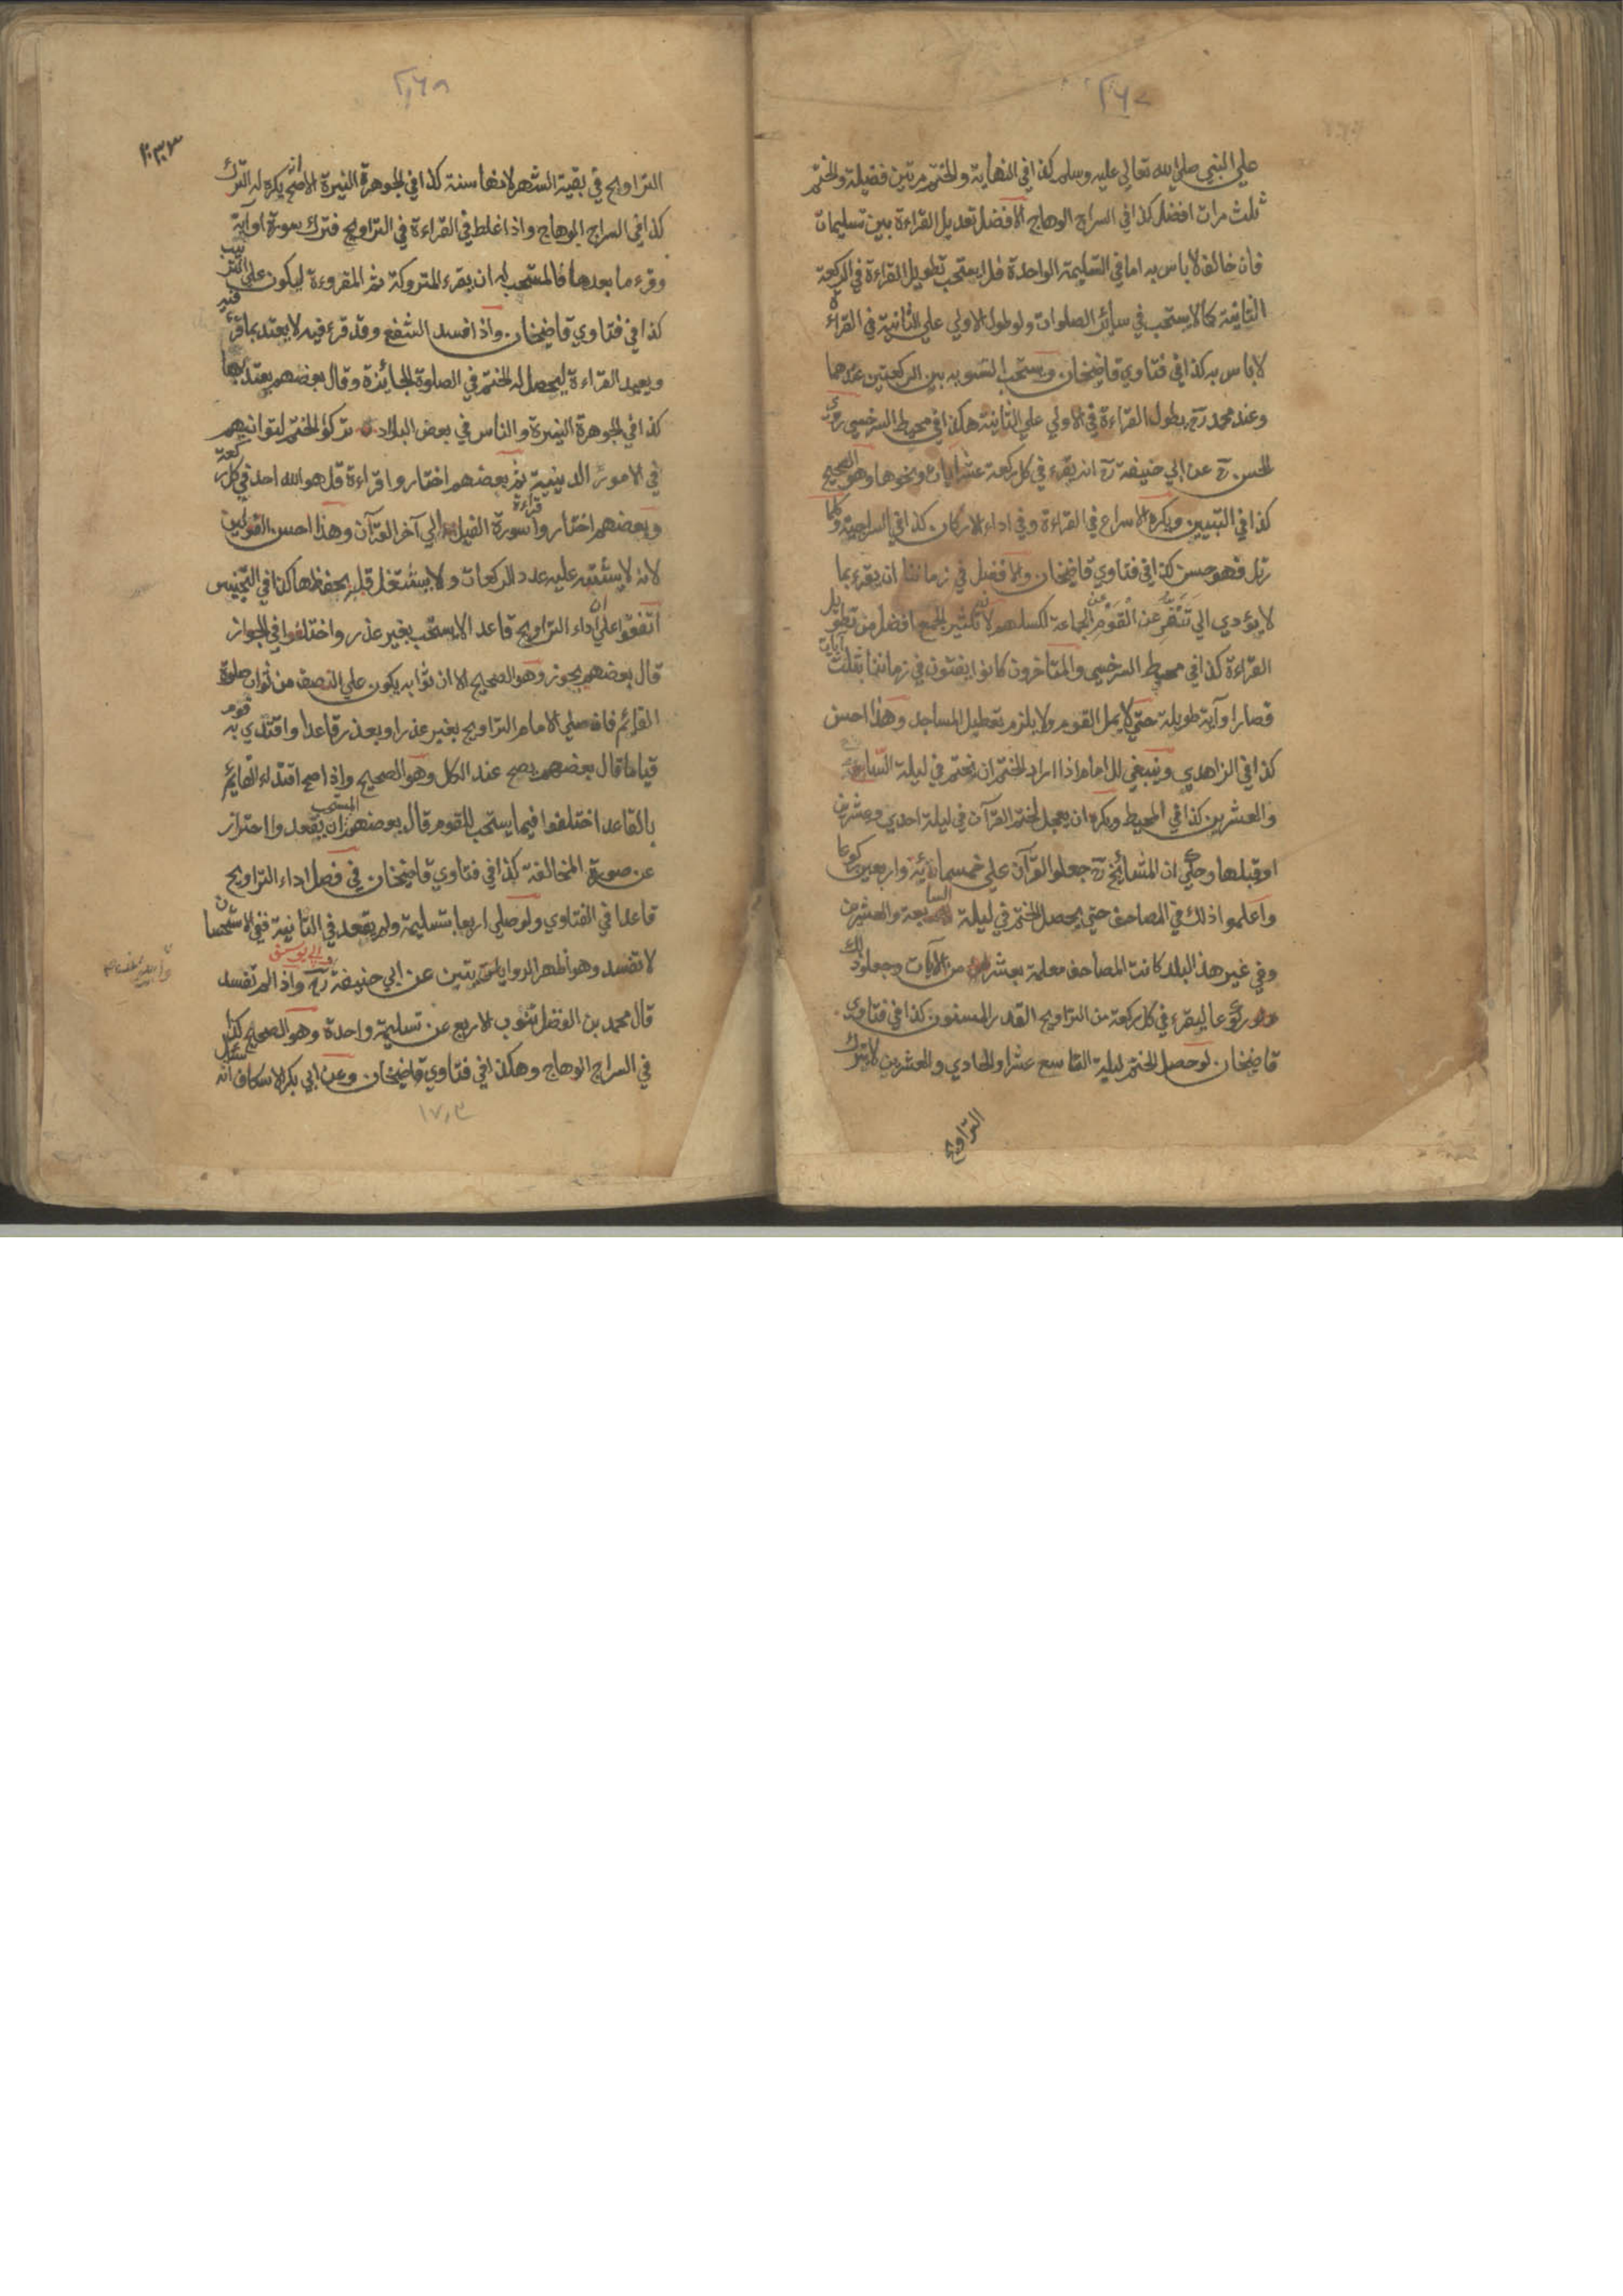 ٢٦٧
علي النبي صلي الله تعالي عليه وسلم كذا في النهاية والختم مرتين فضيلة والختم
ثلث مرات افضل كذا في السراج الوهاج الافضل تعديل القراءة بين تسليمات
فان خالف لا باس به اما في التسليمة الواحدة فلا يستحب تطويل القراءة في الركعة
الثانية كما لا يستحب في سائر الصلوات ولو طول الاولي علي الثانية في القراءة
لا باس به كذا في فتاوي قاضيخان ويستحب التسوية بين الركعتين عندهما
وعند محمد رح يطول القراءة في الاولي علي الثانية هكذا في محيط السرخسي روي
الحسن رح عن ابي حنيفة رح انه يقرء في كل ركعة عشر ايات ونحوها وهو الصحيح
كذا في التبيين ويكره الاسراع في القراءة وفي اداء الاركان كذا في السراجية وكلما
رتل فهو حسن كذا في فتاوي قاضيخان والافضل في زماننا ان يقرء بما
لا يؤدي الي تنفر القوم عن الجماعة لكسلهم لان تكثير الجمع افضل من تطويل
القراءة كذا في محيط السرخسي والمتاخرون كانوا يفتون في زماننا بثلث آيات
قصار او آية طويلة حتي لا يمل القوم ولا يلزم تعطيل المساجد وهذا احسن
كذا في الزاهدي وينبغي للامام اذا اراد الختم ان يختم في ليلة السابعة
والعشرين كذا في المحيط ويكره ان يعجل ختم القرآن في ليلة احدي وعشرين
او قبلها وحكي ان المشائخ رح جعلوا القرآن علي خمسمائة واربعين ركوعا
واعلموا ذلك في المصاحف حتي يحصل الختم في ليلة السابعة والعشرين
وفي غير هذا البلد كانت المصاحف معلمة بعشر من الآيات وجعلوا ذلك
ركوعا ليقرء في كل ركعة من التراويح القدر المسنون كذا في فتاوي
قاضيخان لو حصل الختم ليلة التاسع عشر او الحادي والعشرين لا يترك
التراويح
٢٦٨
التراويح في بقية الشهر لانها سنة كذا في الجوهرة النيرة الاصح انه يكره له الترك
كذا في السراج الوهاج واذا غلط في القراءة في التراويح فترك سورة او آية
وقرء ما بعدها فالمستحب له ان يقرء المتروكة ثم المقروءة ليكون علي الترتيب
كذا في فتاوي قاضيخان واذا فسد الشفع وقد قرء فيه لا يعتد بما قرء فيه
ويعيد القراءة ليحصل له الختم في الصلوة الجائزة وقال بعضهم يعتد بها
كذا في الجوهرة النيرة والناس في بعض البلاد تركوا الختم لتوانيهم
في الامور الدينية ثم بعضهم اختاروا قراءة قل هو الله احد في كل ركعة
وبعضهم اختاروا قراءة سورة الفيل الي آخر القرآن وهذا احسن القولين
لانه لا يشتبه عليه عدد الركعات ولا يشتغل قلبه بحفظها كذا في التجنيس
اتفقوا علي ان اداء التراويح قاعدا لا يستحب بغير عذر واختلفوا في الجواز
قال بعضهم يجوز وهو الصحيح الا ان ثوابه يكون علي النصف من ثواب صلوة
القائم فان صلي الامام التراويح بغير عذر او بعذر قاعدا واقتدي به قوم
قياما قال بعضهم يصح عند الكل وهو الصحيح واذا صح اقتداء القايم
بالقاعد اختلفوا فيما يستحب للقوم قال بعضهم المستحب ان يقعدوا احترازا
عن صورة المخالفة كذا في فتاوي قاضيخان في فصل اداء التراويح
قاعدا في الفتاوي ولو صلي اربعا بتسليمة ولم يقعد في الثانية ففي الاستحسان
لا تفسد وهو اظهر الروايتين عن ابي حنيفة رح وابي يوسف واذا لم تفسد
قال محمد بن الفضل تنوب الاربع عن تسليمة واحدة وهو الصحيح كذا
في السراج الوهاج وهكذا في فتاوي قاضيخان وعن ابي بكر الاسكاف انه سئل